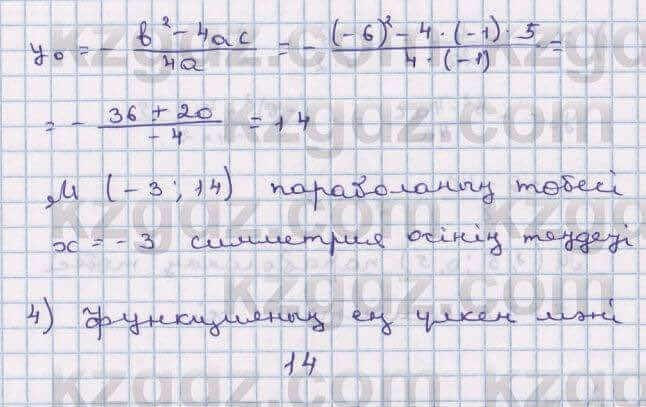 y₀ = - (b² - 4ac)/(4a) = - ((-6)² - 4 · (-1) · 5)/(4 · (-1)) =
= - (36 + 20)/(-4) = 14
M (-3; 14) параболаның төбесі
x = -3 симметрия осінің теңдеуі
4) Функцияның ең үлкен мәні
14
kzgdz.com